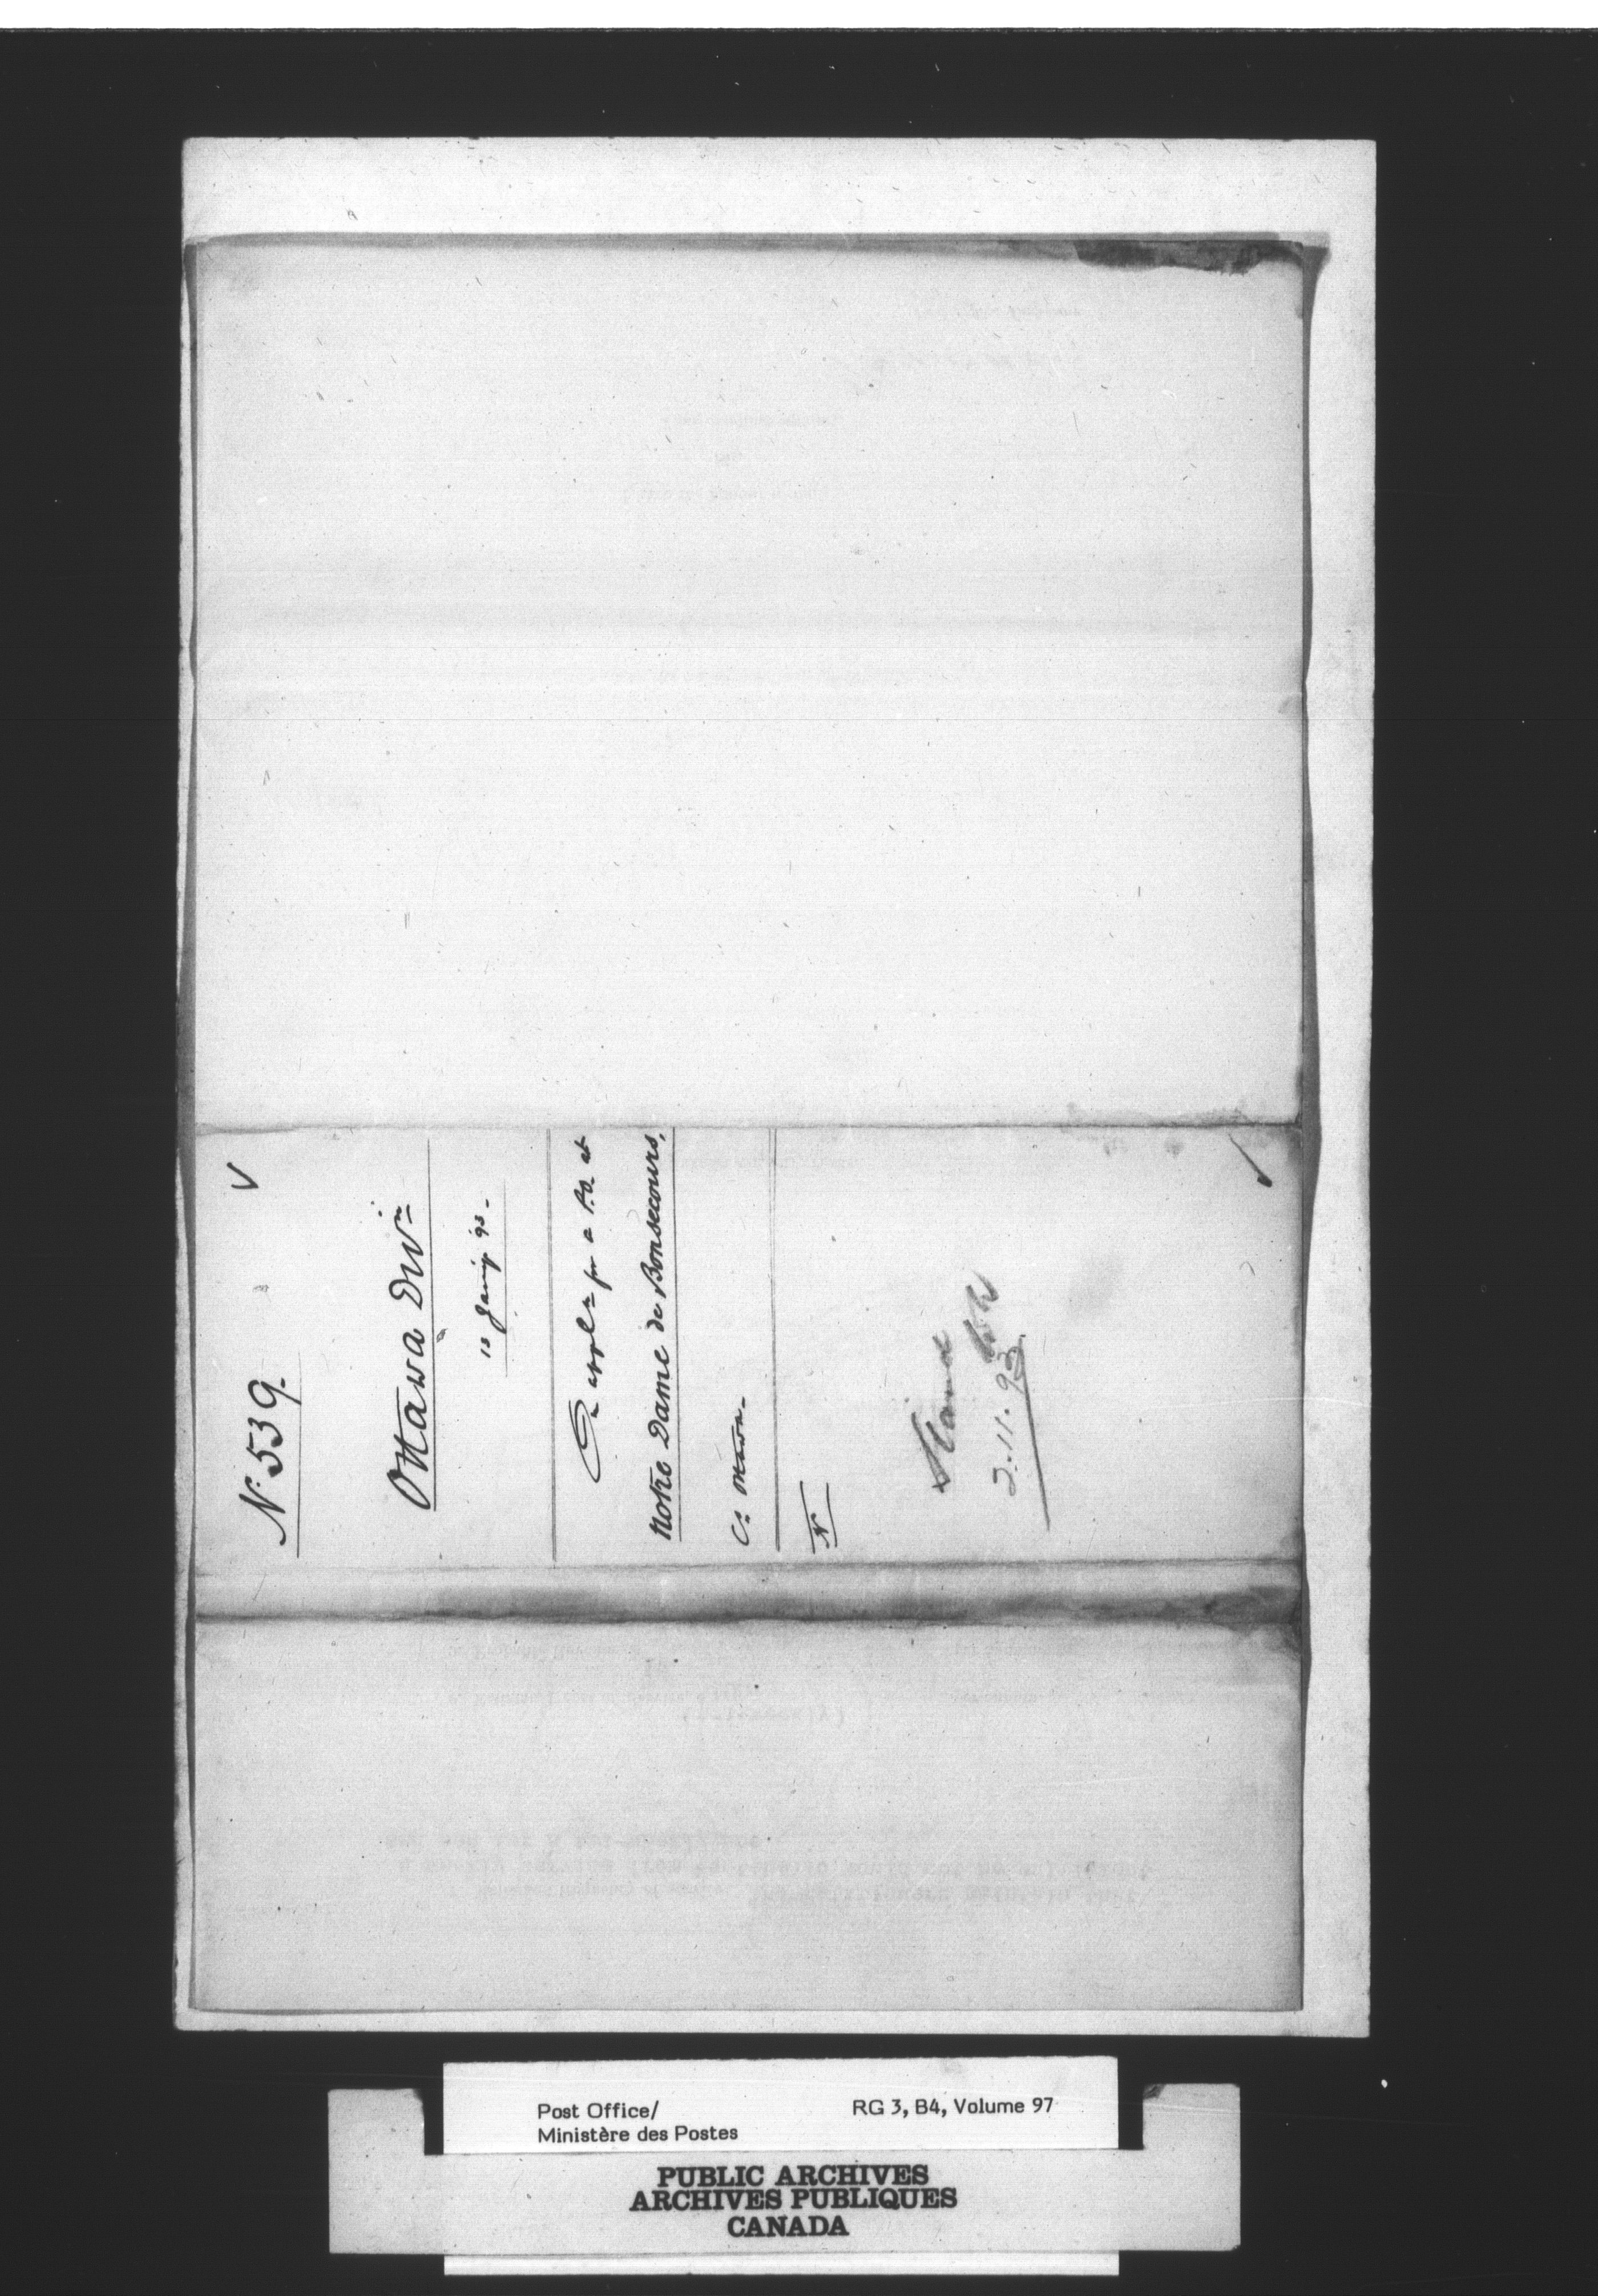 No. 539.
Ottawa Divn.
13 Jany 93.
On appln for a P.O. at
Notre Dame de Bonsecours,
Co. Ottawa.
N
Stand
2.11.93
Post Office/
Ministère des Postes
RG 3, B4, Volume 97
PUBLIC ARCHIVES
ARCHIVES PUBLIQUES
CANADA